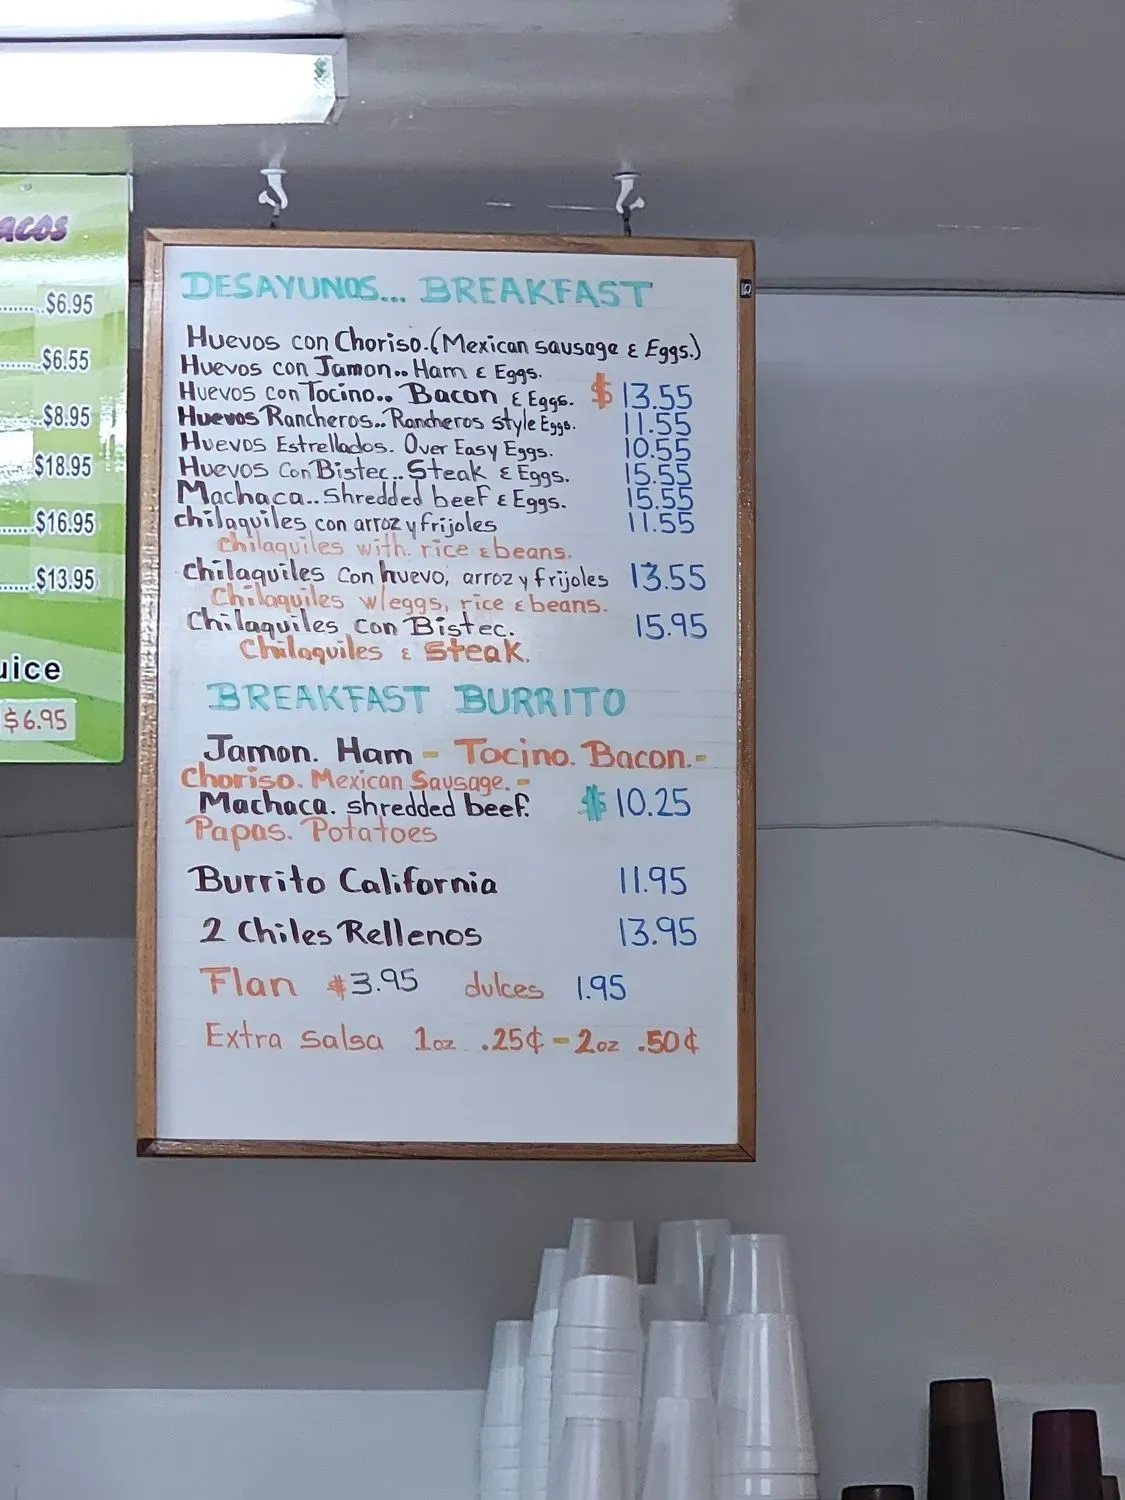 acos
........$6.95
......$6.55
...$8.95
$18.95
......$16.95
.......$13.95
uice
$6.95
DESAYUNOS... BREAKFAST
Huevos con Choriso.(Mexican sausage & Eggs.)
Huevos con Jamon.. Ham & Eggs.
Huevos con Tocino.. Bacon & Eggs. $ 13.55
Huevos Rancheros.. Rancheros style Eggs. 11.55
Huevos Estrellados. Over Easy Eggs. 10.55
Huevos Con Bistec.. Steak & Eggs. 15.55
Machaca.. Shredded beef & Eggs. 15.55
chilaquiles con arroz y frijoles 11.55
Chilaquiles with. rice & beans.
Chilaquiles Con huevo, arroz y frijoles 13.55
Chilaquiles w/eggs, rice & beans.
Chilaquiles con Bistec. 15.95
Chilaquiles & Steak.
BREAKFAST BURRITO
Jamon. Ham - Tocino. Bacon.-
Choriso. Mexican Sausage.-
Machaca. shredded beef. $ 10.25
Papas. Potatoes
Burrito California 11.95
2 Chiles Rellenos 13.95
Flan $3.95 dulces 1.95
Extra Salsa 1oz .25¢ - 2oz .50¢